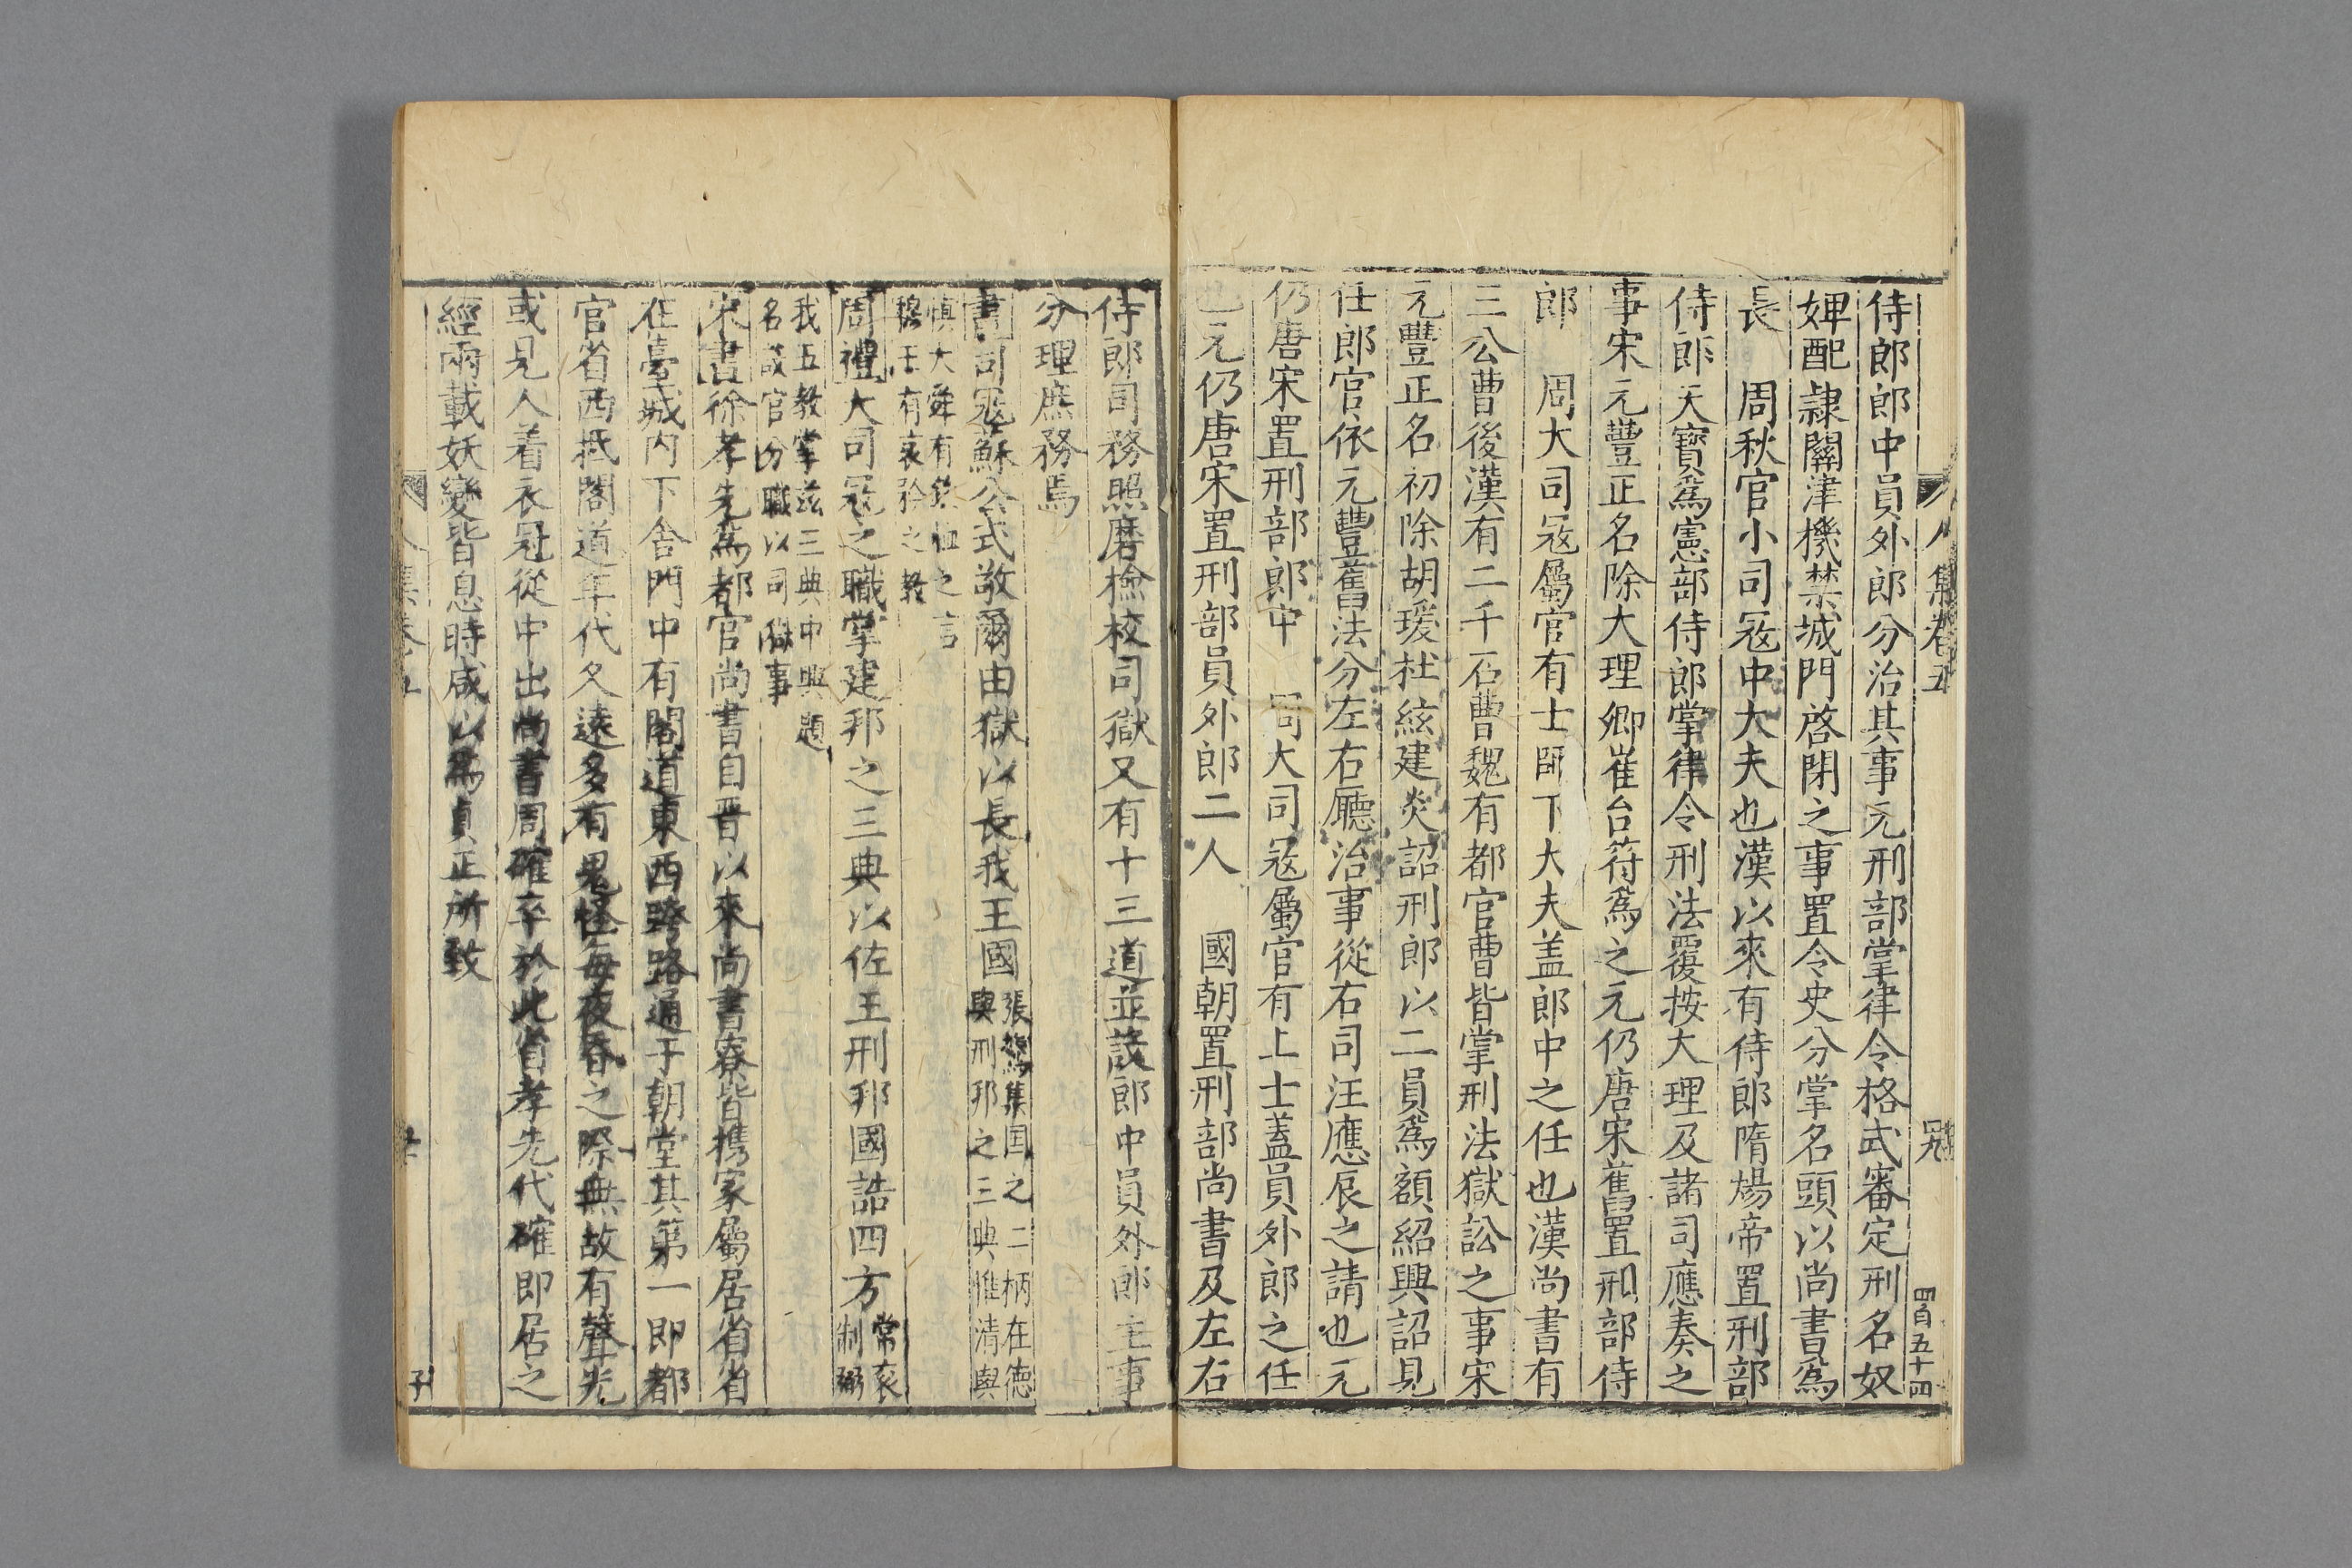 人集卷五
四百五十四
侍郎郎中員外郎分治其事元刑部掌律令格式審定刑名奴
婢配隷關津機禁城門啓閉之事置令史分掌名頭以尚書爲
長 周秋官小司㓂中大夫也漢以來有侍郎隋煬帝置刑部
侍郎天寳爲憲部侍郎掌律令刑法覆按大理及諸司應奏之
事宋元豐正名除大理卿崔台符爲之元仍唐宋舊置刑部侍
郎 周大司㓂屬官有士師下大夫盖郎中之任也漢尚書有
三公曹後漢有二千石曹魏有都官曹皆掌刑法獄訟之事宋
元豐正名初除胡瑗杜紘建炎詔刑郎以二員爲額紹興詔見
任郎官依元豐舊法分左右廳治事從右司汪應辰之請也元
仍唐宋置刑部郎中 周大司㓂屬官有上士蓋員外郎之任
也元仍唐宋置刑部員外郎二人 國朝置刑部尚書及左右
侍郎司務照磨檢校司獄又有十三道並設郎中員外郎主事
分理庶務焉
書司㓂蘇公式敬爾由獄以長我王國
張𪁉集国之二柄在德
與刑邦之三典惟清與
慎大舜有欽恤之言
穆王有哀矜之教
周禮大司㓂之職掌建邦之三典以佐王刑邦國詰四方
常衮
制弼
我五教掌兹三典中興題
名設官分職以司傚事
宋書徐孝先爲都官尚書自晋以來尚書寮皆携家屬居省省
在臺城内下舍門中有閣道東西跨路通于朝堂其第一即都
官省西抵閣道年代久遠多有鬼怪每夜昏之際無故有聲光
或見人着衣冠從中出尚書周確卒於此省孝先代確即居之
經兩載妖變皆息時咸以爲貞正所致